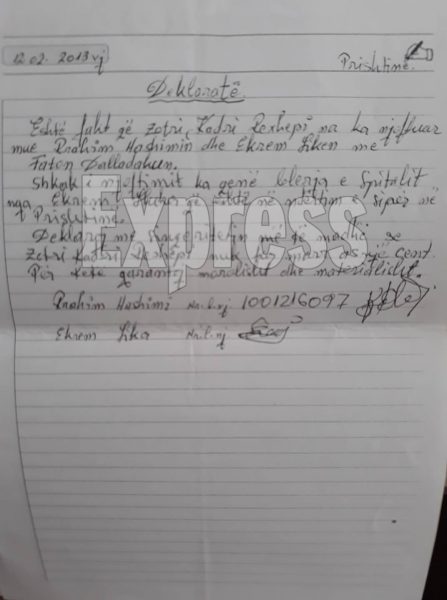 12.02.2013 vj
Prishtinë.
Deklaratë.
Eshtë fakt që Zotri, Kadri Rexhepi na ka njoftuar
mue Brahim Hashimin dhe Ekrem Liken me
Faton Dalladakun.
Shkak i njoftimit ka qenë blerja e Spitalit
nga Ekrem që është në ndërtim e Sipër në
Prishtinë.
Deklaroj me Singeritetin më të madhë se
Zotri Kadri Rexhepi nuk ka marr as një cent.
Për këtë garantoj moralisht dhe materialisht.
Brahim Hashimi Nr.l.nj 1001216097
Ekrem Lika Nr.l.nj
Express